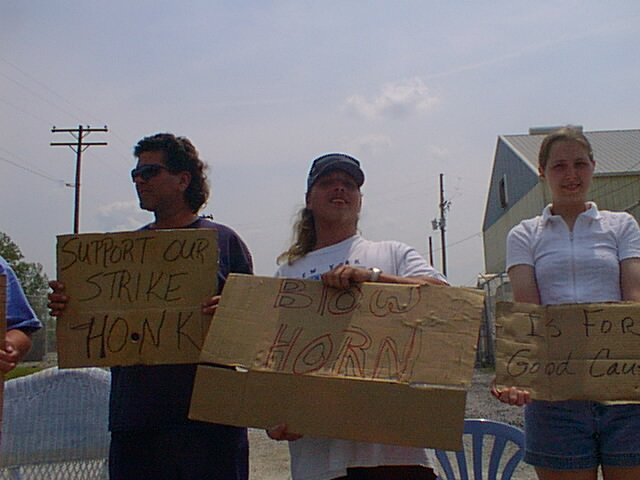 SUPPORT OUR
STRIKE
HONK
NEW YORK
BLOW
HORN
Is For
Good Cau